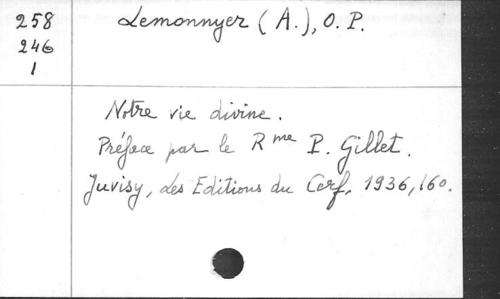 258
246
1
Lemonnyer (A.), O. P.
Notre vie divine.
Préface par le Rme P. Gillet.
Juvisy, Les Editions du Cerf, 1936, 160.